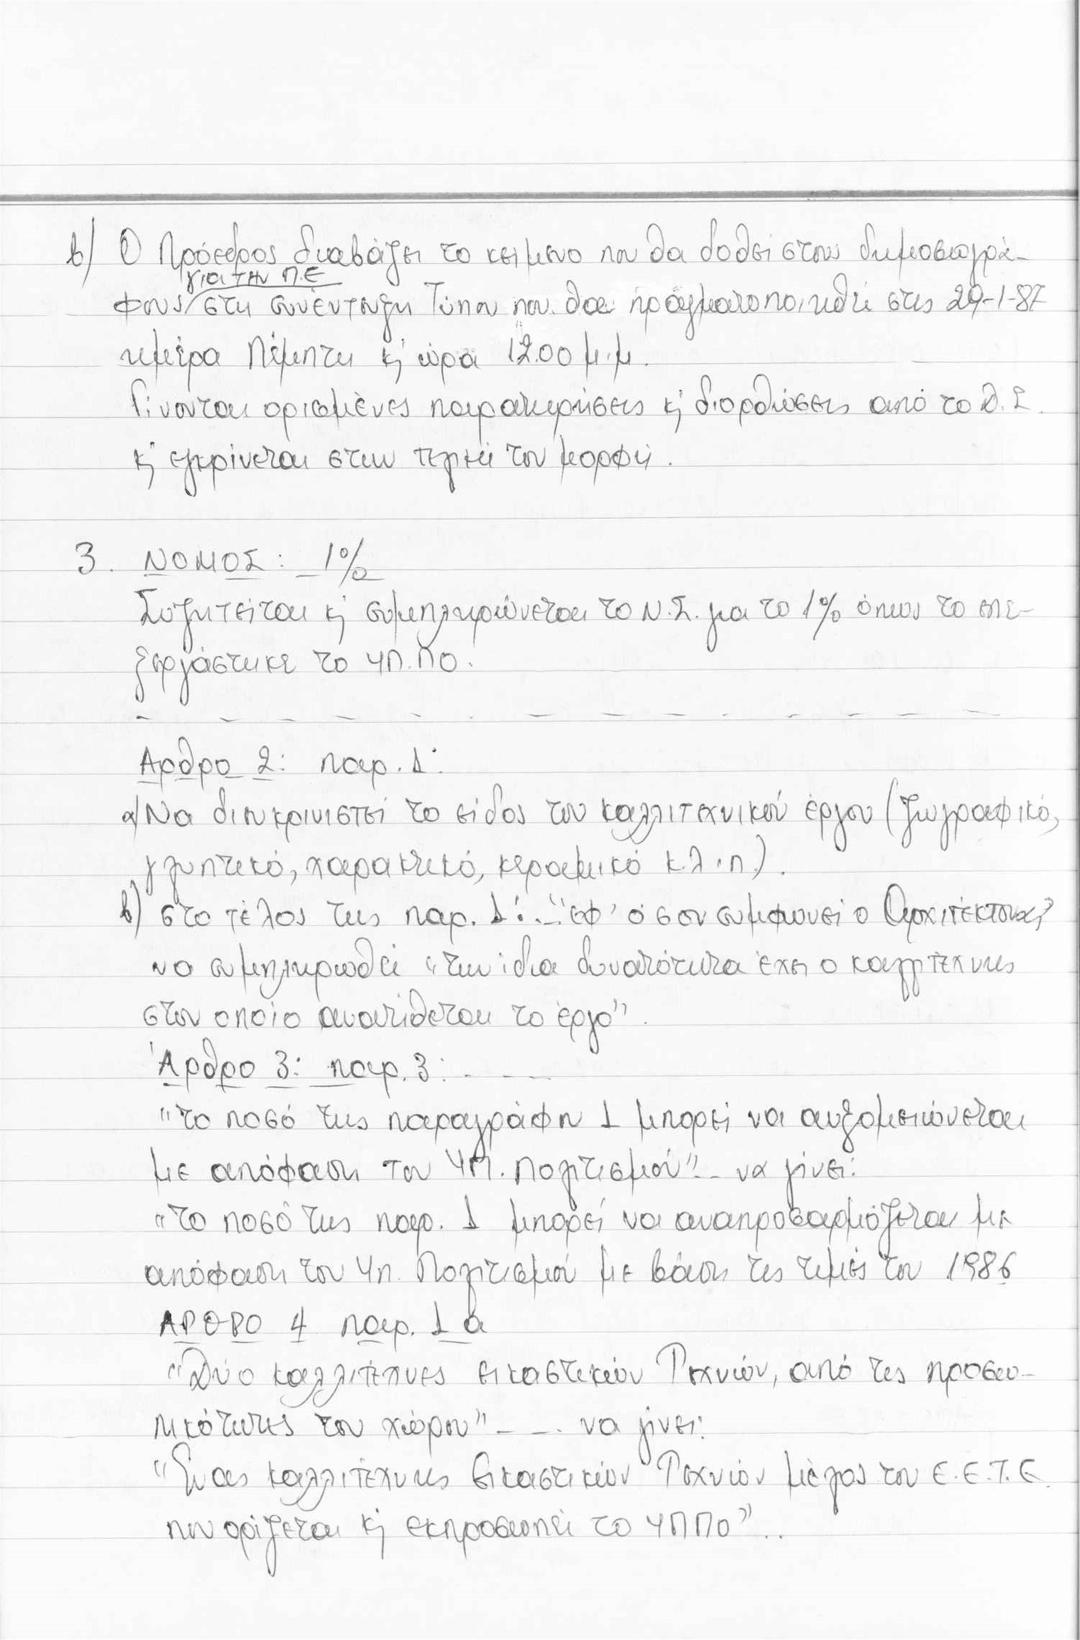 β) Ο Πρόεδρος διαβάζει το κείμενο που θα δοθεί στους δημοσιογρά-
για την Π.Ε
φους/στη συνέντευξη Τύπου που θα πραγματοποιηθεί στις 29-1-87
ημέρα Πέμπτη κ' ώρα 12.00 μ.μ.
Γίνονται ορισμένες παρατηρήσεις κ' διορθώσεις από το Δ.Σ.
κ' εγκρίνεται στην τελική του μορφή.
3. ΝΟΜΟΣ: 1%
Συζητείται κ' συμπληρώνεται το Ν.Σ. για το 1% όπως το επε-
ξεργάστηκε το ΥΠ.ΠΟ.
Αρθρο 2: παρ. 1:
α) Να διευκρινιστεί το είδος του καλλιτεχνικού έργου (ζωγραφικό,
γλυπτικό, χαρακτικό, κεραμικό κ.λ.π).
β) στο τέλος της παρ. 1:.. "εφ' όσον συμφωνεί ο Αρχιτέκτονας"
να συμπληρωθεί "την ίδια δυνατότητα έχει ο καλλιτέχνης
στον οποίο ανατίθεται το έργο".
Άρθρο 3: παρ. 3: - - -
"το ποσό της παραγράφη 1 μπορεί να αυξομειώνεται
με απόφαση του ΥΠ. Πολιτισμού" - να γίνει:
"το ποσό της παρ. 1 μπορεί να αναπροσαρμόζεται με
απόφαση του Υπ. Πολιτισμού με βάση τις τιμές του 1986
ΑΡΘΡΟ 4 παρ. 1 α
"Δύο καλλιτέχνες εικαστικών Τεχνών, από τις προσω-
πικότητες του χώρου" - - - να γίνει:
"Ένας καλλιτέχνης εικαστικών Τεχνών μέλος του Ε.Ε.Τ.Ε
που ορίζεται κ' εκπροσωπεί το ΥΠΠΟ"..